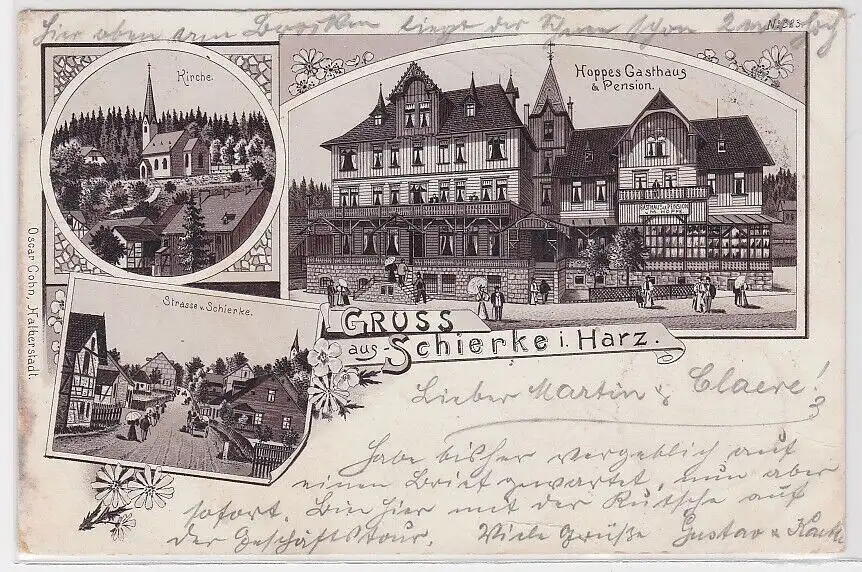 Hier oben am Brocken liegt der Schnee schon 2 mtr hoch
No 323.
Kirche.
Hoppes Gasthaus
& Pension.
Oscar Cohn, Halberstadt.
Strasse v. Schierke.
GRUSS
aus Schierke i. Harz.
Lieber Martin & Claere!
Habe bisher vergeblich auf
einen Brief gewartet, nun aber
sofort. Bin hier mit der Kutsche auf
der Geschäftstour. Viele Grüße Gustav &